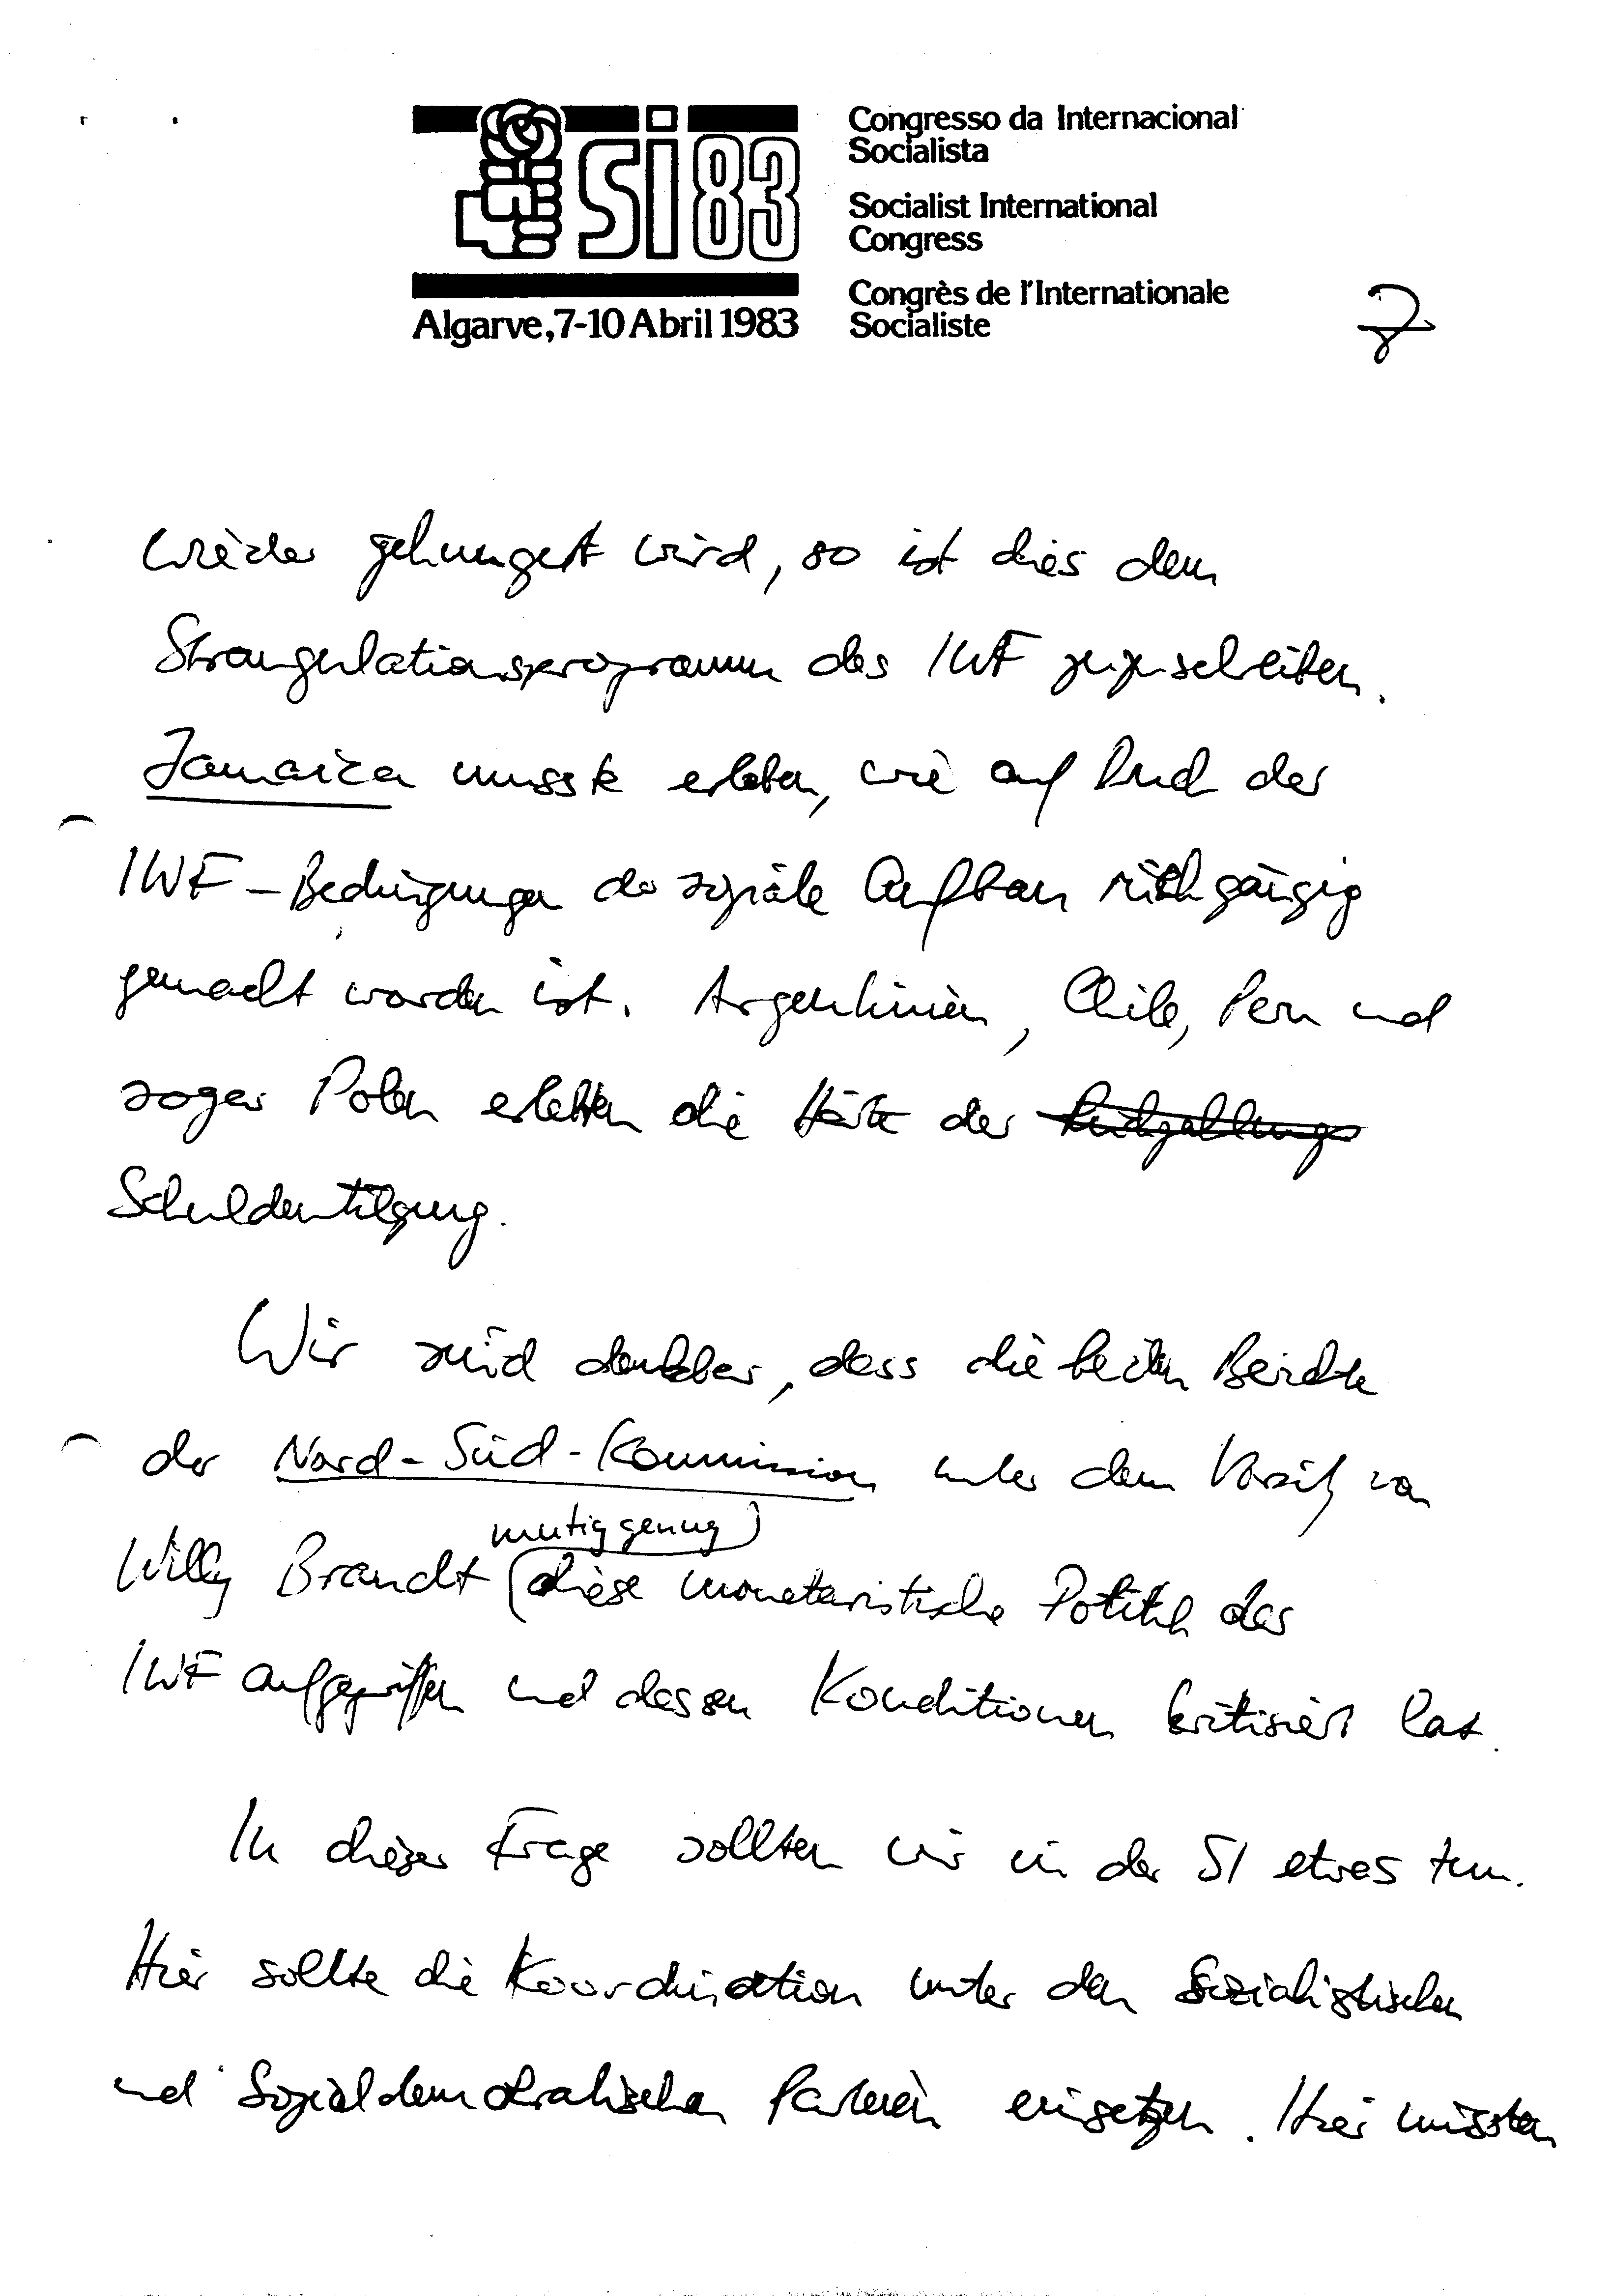 si 83
Algarve, 7-10 Abril 1983
Congresso da Internacional
Socialista
Socialist International
Congress
Congrès de l'Internationale
Socialiste
7
wieder gehungert wird, so ist dies dem
Strangulationsprogramm des IWF zuzuschreiben.
Jamaica musste erleben, wie auf Druck der
IWF-Bedingungen der soziale Aufbau rückgängig
gemacht worden ist. Argentinien, Chile, Peru und
sogar Polen erlebten die Härte der Rückzahlung
Schuldentilgung.
Wir sind dankbar, dass die beiden Berichte
der Nord-Süd-Kommission unter dem Vorsitz von
mutig genug
Willy Brandt diese monetaristische Politik des
IWF aufgegriffen und dessen Konditionen kritisiert hat.
In dieser Frage sollten wir in der SI etwas tun.
Hier sollte die Koordination unter den Sozialistischen
und Sozialdemokratischen Parteien einsetzen. Hier müssten